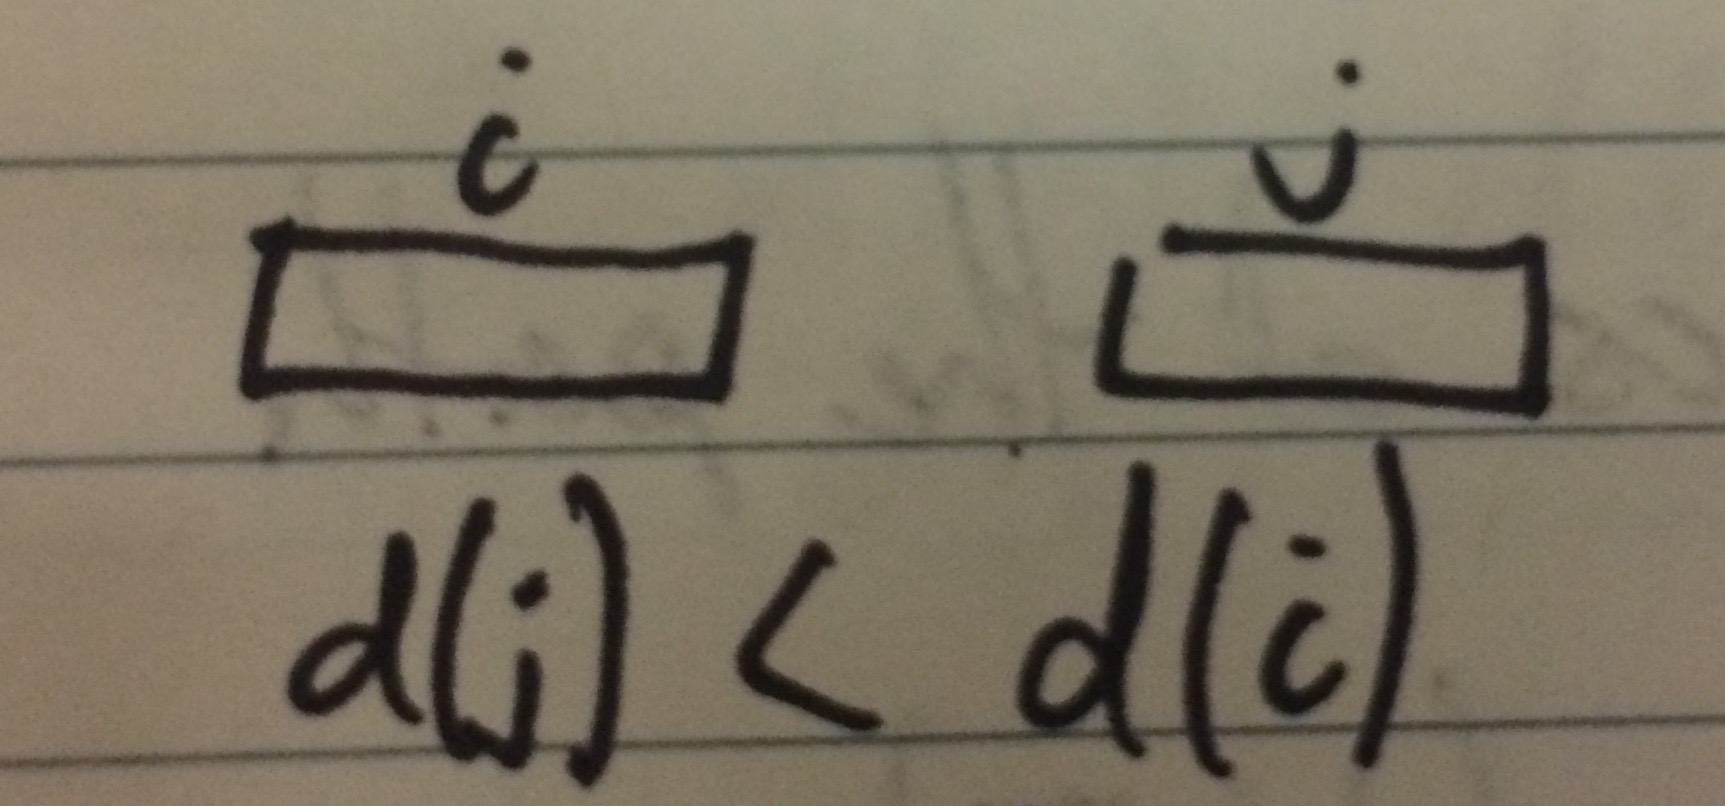 i j
d(j) < d(i)